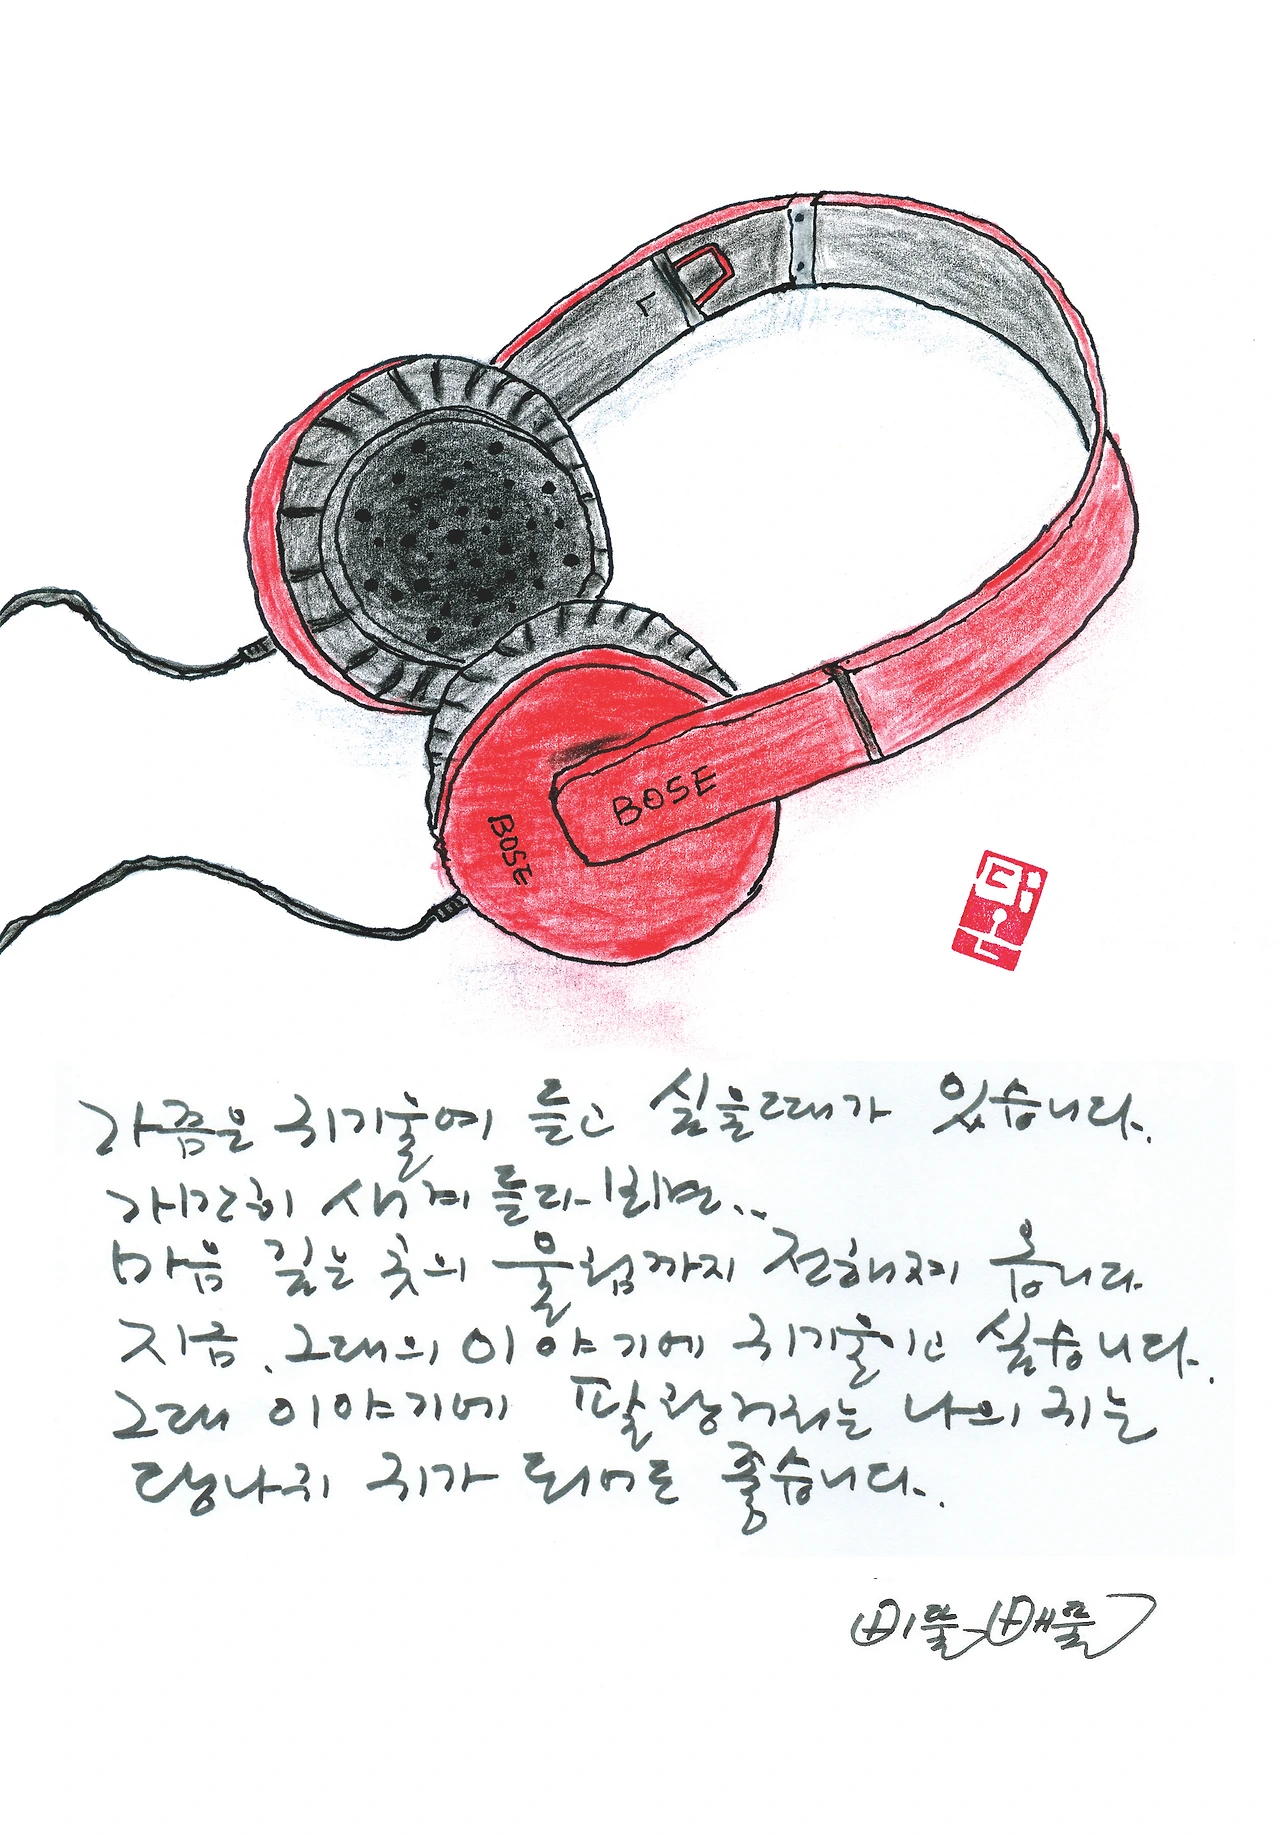 L
BOSE
BOSE
가끔은 귀기울여 듣고 싶을때가 있습니다.
가만히 새겨 듣다보면..
마음 깊은 곳의 울림까지 전해져 옵니다
지금, 그대의 이야기에 귀기울이고 싶습니다.
그대 이야기에 팔랑거리는 나의 귀는
당나귀 귀가 되어도 좋습니다.
삐뚤빼뚤